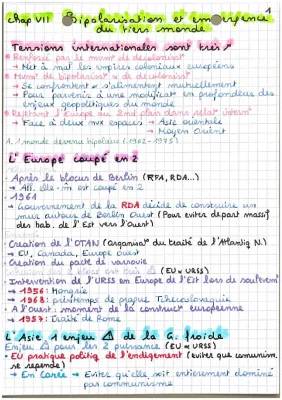 Chap VII Bipolarisation et émergence
du tiers monde
1
Tensions internationales sont très ↗
* Renforcé par le mvmt de décolonisat°
→ Met à mal les empires coloniaux européens
* Mvmt de bipolarisat° et de décolonisat°
→ Se confrontent et s'alimentent mutuellement
→ Pour parvenir à une modificat° en profondeur des
enjeux géopolitiques du monde
* Rejettent l'Europe au 2nd plan dans relat° intern°
→ Face à deux nvx espaces → Asie orientale
→ Moyen Orient
A. 1 monde devenu bipolaire (1962-1975)
L'Europe coupé en 2
• Après le blocus de Berlin (RFA, RDA...)
→ All. elle-m est coupé en 2
• 1961
→ Gouvernement de la RDA décide de construire un
mur autour de Berlin Ouest (Pour éviter départ massif
des hab. de l'Est vers l'Ouest)
• Création de l'OTAN (Organisat° du traité de l'Atlantiq N.)
→ EU, Canada, Europe Ouest
• Création du pacte de varsovie
(EU ≠ URSS)
• Intervention de l'URSS en Europe de l'Est lors de soulèvem°
→ 1956 : Hongrie
→ 1968 : printemps de prague Tchécoslovaquie
• A l'ouest : moment de la construct° européenne
→ 1957 : Traité de Rome
L'Asie 1 enjeu de la G. froide
Enjeu pour les 2 puissances (EU ≠ URSS)
• EU pratique politiq de l'endigement (éviter que communism.
se répende)
→ En Corée → Eviter qu'elle soit entièrement dominé
par communisme